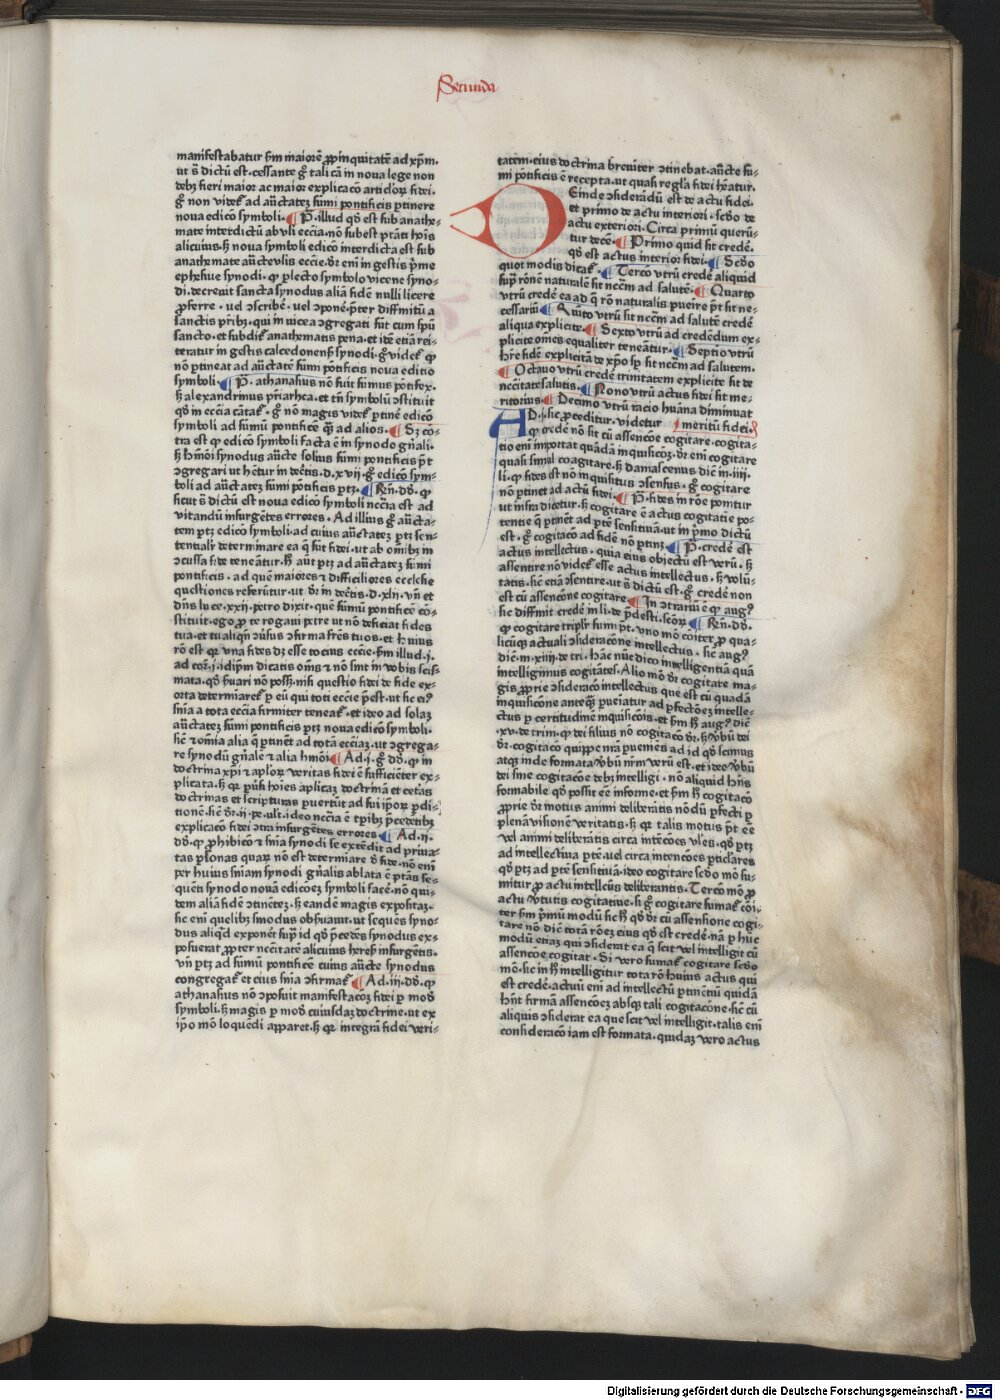 Secunda
manifestabatur scđm maiorē ꝓpinquitatē ad xp̄m.
ut s̄ dictū est. cessante gͦ tali cā in noua lege non
debȝ fieri maior ac maior explicacō articloꝝ fidei.
gͦ non videt᷑ ad auctatēȝ sūmi pontificis ꝑtinere
noua edicō simboli. ¶ P̄. illud qđ est sub anathe-
mate interdictū ab vli eccīa. nō subest ptāti hoīs
alicuius. sȝ noua symboli edicō interdicta est sub
anathemate auctevlis eccīe. dr̄ enī in gestis p̄me
ephesiue synodi. ꝙ plecto symbolo vicene syno-
di. decreuit sancta synodus aliā fidē nulli licere
ꝓferre. uel ꝯscribē. uel ꝯponē. p̄ter diffinitā a
sanctis p̄ribꝫ. qui in nicea ꝯgregati sūt cum spū
sancto. et subdit᷑ anathematis pena. et itē etiā rei-
teratur in gestis calcedonensꝫ synodi. gͦ videt᷑ ꝙ
nō ꝑtineat ad auctatē sūmi pōtificis noua editio
symboli. ¶ P̄. athanasius nō fuit sūmus pōtifex.
sȝ alexandrinus p̄riarcha. et tn̄ symbolū ꝯstituit
qđ in eccīa cātat᷑. gͦ nō magis videt᷑ ꝑtinē edicō
symboli ad sūmū pontificē qȝ ad alios. ¶ Sȝ cō-
tra est ꝙ edicō symboli facta ē in synodo gn̄ali.
sȝ hmōi synodus aucte solius sūmi pontificis p̄t
ꝯgregari ut hētur in dectis. d. xvij. gͦ edicō sym-
boli ad auctatēȝ sūmi pōtificis ptȝ. ¶ Rn̄. dđ. ꝙ
sicut s̄ dictū est noua edicō symboli nccīa est ad
vitandū insurgētes errores. Ad illius gͦ aucta-
tem ptȝ edicō symboli. ad cuius auctatēȝ ptȝ sen-
tentialr̄ determinare ea q̄ sūt fidei. ut ab om̄ibȝ in
ꝯcussa fide teneātur. sȝ aūt ptȝ ad auctatēȝ sūmi
pontificis. ad quē maiores ⁊ difficiliores ecclesie
questiones referūtur. ut dr̄ in dectis. d. xlij. vn̄ et
dn̄s luce. xxij. petro dixit. quē sūmū pontificē cō-
stituit. ego ꝓ te rogaui petre ut nō deficiat fides
tua. et tu aliqn̄ ꝯūsus ꝯfirma frēs tuos. et h̄ uius
rō est qr̄ vna fides dȝ esse tocius eccīe. scđm illud. j.
ad cor. j. idip̄m dicatis om̄s ⁊ nō sint in vobis scis-
mata. qđ s̄uari nō possꝫ. nisi questio fidei de fide ex-
orta determiaret᷑ ꝑ eū qui toti eccīe p̄est. ut sic eiꝰ
sn̄ia a tota eccīa firmiter teneat᷑. et ideo ad solaȝ
auctatēȝ sūmi pontificis ptȝ noua edicō symboli.
sic̄ ⁊ om̄ia alia q̄ ꝑtinēt ad totā eccīaȝ. ut ꝯgrega-
re synodū gn̄alē ⁊ alia hmōi. ¶ Ad. j. gͦ dđ. ꝙ in
doctrina xp̄i ⁊ apl̄oꝝ veritas fidei ē sufficiēter ex-
plicata. sȝ qr̄ ꝑūsi hoīes aplicaȝ doctrinā et cetas
doctrinas et scripturas ꝑuertūt ad sui ip̄oꝝ ꝑdi-
tionē. sic̄ dr̄. ij. pe. ult. ideo nccīa ē tꝑibȝ p̄cedētibȝ
explicacō fidei ꝯtra insurgētes errores. ¶ Ad. ij.
dđ. ꝙ ꝓhibicō ⁊ sn̄ia synodi se extēdit ad priua-
tas ꝑsonas quaꝝ nō est determiare đ fide. nō enī
per huius sn̄iam synodi gn̄alis ablata ē ptās se-
quēti synodo nouā edicoēȝ symboli facē. nō qui-
dem aliā fidē ꝯtinētēȝ. sȝ eandē magis expositaȝ.
sic enī quelibȝ sinodus obs̄uauit. ut sequēs syno-
dus aliqđ exponēt sup̄ id qđ p̄cedēs synodus ex-
posuerat ꝓpter nccītatē alicuius heresꝫ insurgētis.
vn̄ ptȝ ad sūmū pontificē cuius aucte synodus
congregat᷑ et eius sn̄ia ꝯfirmat᷑. ¶ Ad. iij. dđ. ꝙ
athanasius nō ꝯposuit manifestacōȝ fidei ꝑ modū
symboli. sȝ magis ꝑ modū cuiusdaȝ doctrine. ut ex
ip̄o mō loquēdi apparet. sȝ qr̄ integrā fidei veri-
tatem. eius doctrina breuiter ꝯtinebat. aucte sū-
mi pōtificis ē recepta. ut quasi regl̄a fidei hēatur.
DEinde ꝯsiderādū est de actu fidei.
et primo de actu interiori. scđo de
actu exteriori. Circa primū querū-
tur decē. ¶ Primo quid sit credē.
qđ est actus interior fidei. ¶ Scđo
quot modis dicat᷑. ¶ Tercō vtrū credē aliquid
sup̄ rōnē naturalē sit nccīm ad salutē. ¶ Quarto
vtrū credē ea ad q̄ rō naturalis ꝑueire p̄t sit ne-
cessariū ¶ Quīto vtrū sit nccīm ad salutē credē
aliqua explicite. ¶ Sexto vtrū ad credēdum ex-
plicite om̄es equaliter teneātur. ¶ Septīo vtrū
hr̄e fidē explicitā de xp̄o sp̄ sit nccīm ad salutem.
¶ Octauo vtrū credē trinitatem explicite sit de
nccītate salutis. ¶ Nono vtrū actus fidei sit me-
ritorius ¶ Decimo vtrū racio huāna diminuat
meritū fidei.
AD. j. sic ꝓceditur. videtur
ꝙ credē nō sit cū assensōe cogitare. cogita-
tio enī importat quādā inquisicōȝ. dr̄ enī cogitare
quasi simul coagitare. sȝ damascenus dic̄ in. iiij.
li. ꝙ fides est nō inquisitus ꝯsensus. gͦ cogitare
nō ptinet ad actū fidei. ¶ P̄. fides in rōe ponitur
ut infra dicetur. sȝ cogitare ē actus cogitatie po-
tentie q̄ ptinēt ad ptē sensitiuā. ut in p̄mo dictū
est. gͦ cogitacō ad fidē nō ptinȝ ¶ P̄. credē est
actus intellectus. quia eius obiectū est verū. sȝ
assentire nō videt᷑ esse actus intellectus. sȝ volū-
tatis. sic̄ etiā ꝯsentire. ut s̄ dictū est. gͦ credē non
est cū assensōne cogitare ¶ In ꝯtrariū ē ꝙ augꝰ
sic diffinit credē in li. de p̄desti. scōꝝ. ¶ Rn̄. dđ.
ꝙ cogitare triplr̄ sumi p̄t. vno mō cōiter ꝓ qua-
licūqȝ actuali ꝯsideracōne intellectus. sic̄ augꝰ
dic̄. in xiiij. de tri. hāc nūc dico intelligentiā quā
intelligimus cogitātes. Alio mō dr̄ cogitare ma-
gis ꝓprie ꝯsideracō intellectus que est cū quadā
inquisicōne anteqȝ ꝑueniatur ad ꝑfectōeȝ intelle-
ctus ꝑ certitudinē inquisicōis. et scđm sȝ augꝰ dic̄
.xv. de trini. ꝙ dei filius nō cogitacō dr̄. sȝ v̄bū dei
dr̄. cogitacō quippe nr̄a ꝑueniēs ad id qđ scimus
atqȝ inde formata v̄bū nr̄m verū est. et ideo v̄bū
dei sine cogitacōne debȝ intelligi. nō aliquid hn̄s
formabile qđ possit eē informe. et scđm sȝ cogitacō
ꝓprie dr̄ motus animi deliberātis nōdū ꝑfecti ꝑ
plenā visionē veritatis. sȝ qr̄ talis motus p̄t eē
vel animi deliberātis circa intēcōes vl̄es. qđ ptȝ
ad intellectiuā ptē. vel circa intencōes pticlares
qđ ptȝ ad ptē sensitiuā. ideo cogitare scđo mō su-
mitur ꝓ actu intellectus deliberantis. Tercō mō ꝓ
actu v̄tutis cogitatiue. si gͦ cogitare sumat᷑ cōi-
ter scđm p̄mū modū sic sȝ qđ dr̄ cū assensione cogi-
tare nō dic̄ totā rōeȝ eius qđ est credē. nā ꝑ hūc
modū etiaȝ qui ꝯsiderat ea q̄ scit vel intelligit cū
assencōe cogitat. Si vero sumat᷑ cogitare scđo
mō. sic in sȝ intelligitur tota rō huius actus qui
est credē. actuū enī ad intellectū ptinētiū quidā
hn̄t firmā assencōeȝ absqȝ tali cogitacōne. sic̄ cū
aliquis ꝯsiderat ea que scit vel intelligit. talis enī
consideracō iam est formata. quidaȝ vero actus
Digitalisierung gefördert durch die Deutsche Forschungsgemeinschaft - DFG